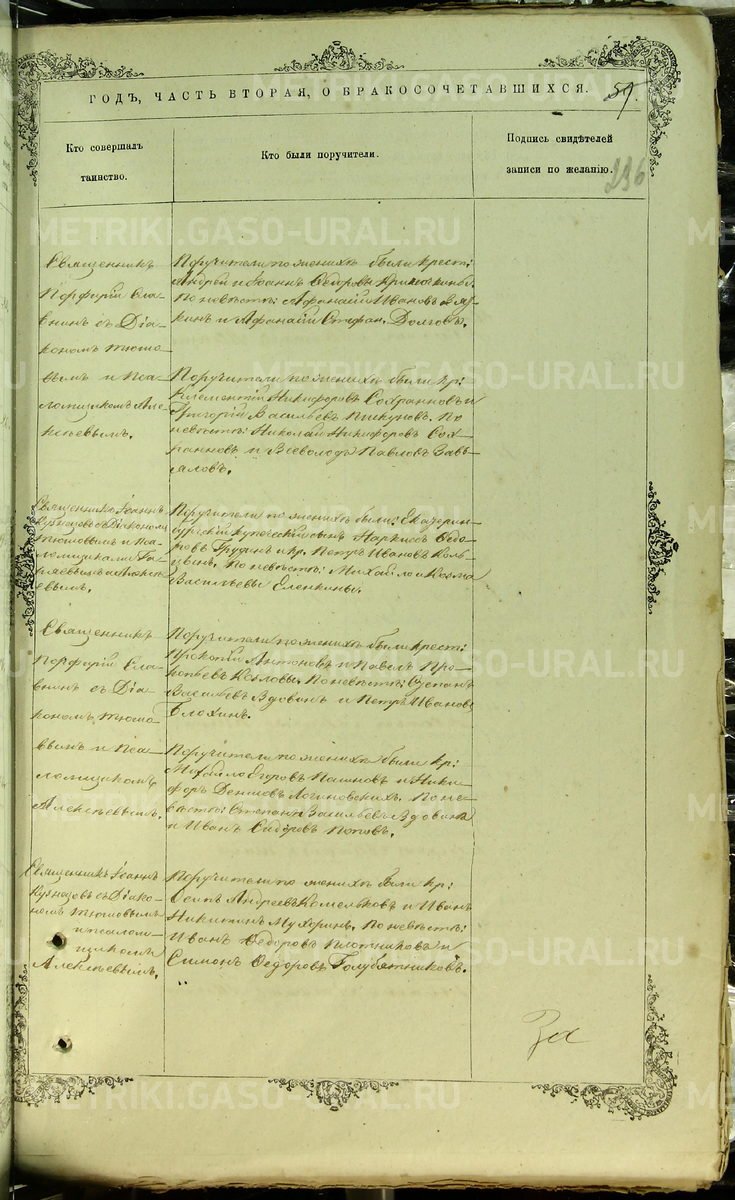 ГОДЪ, ЧАСТЬ ВТОРАЯ, О БРАКОСОЧЕТАВШИХСЯ.
59.
Кто совершалъ
таинство.
Кто были поручители.
Подпись свидѣтелей
записи по желанію.
236
Священникъ
Порфирій Сла-
внинъ съ Діа-
кономъ Тюшо-
вымъ и Пса-
ломщикомъ Але-
ксѣевымъ.
Поручители по женихѣ были крест:
Андрей и Іоаннъ Ѳедоровы
По невѣстѣ: Афанасій Ивановъ
и Афанасій Стефан. Долговъ.
Поручители по женихѣ были кр:
Климентій Никифоровъ Сохранновъ и
Григорій Васильевъ Пикуновъ. По
невѣстѣ: Николай Никифоровъ Сох-
ранновъ и Всеволодъ Павловъ Завь-
яловъ.
Священникъ Іоаннъ
Кузнецовъ съ Діакономъ
Тюшовымъ и Пса-
ломщиками
и Алексѣ-
евымъ.
Поручители по женихѣ были: Екатерин-
бургскій купеческій сынъ Наркисъ Ѳедо-
ровъ и кр. Петръ Ивановъ Коль-
цовъ. По невѣстѣ: Михайло и Козма
Васильевы Еленкины.
Священникъ
Порфирій Сла-
внинъ съ Діа-
кономъ Тюшо-
вымъ и Пса-
ломщикомъ
Алексѣевымъ.
Поручители по женихѣ были крест:
Прокопій Антоновъ и Павелъ Про-
копьевъ Козловы. По невѣстѣ: Степанъ
Васильевъ Вдовинъ и Петръ Ивановъ
Блохинъ.
Поручители по женихѣ были кр:
Михайло Егоровъ Пашновъ и Ники-
форъ Денисовъ Логиновскихъ. По не-
вѣстѣ: Степанъ Васильевъ Вдовинъ
и Иванъ Сидоровъ Поповъ.
Священникъ Іоаннъ
Кузнецовъ съ Діако-
номъ Тюшовымъ
и псалом-
щикомъ
Алексѣевымъ.
Поручители по женихѣ были кр:
Осипъ Андреевъ Комельковъ и Иванъ
Никитинъ Мухоринъ. По невѣстѣ:
Иванъ Ѳедоровъ Плотниковъ и
Симонъ Ѳедоровъ Голубятниковъ.
METRIKI.GASO-URAL.RU